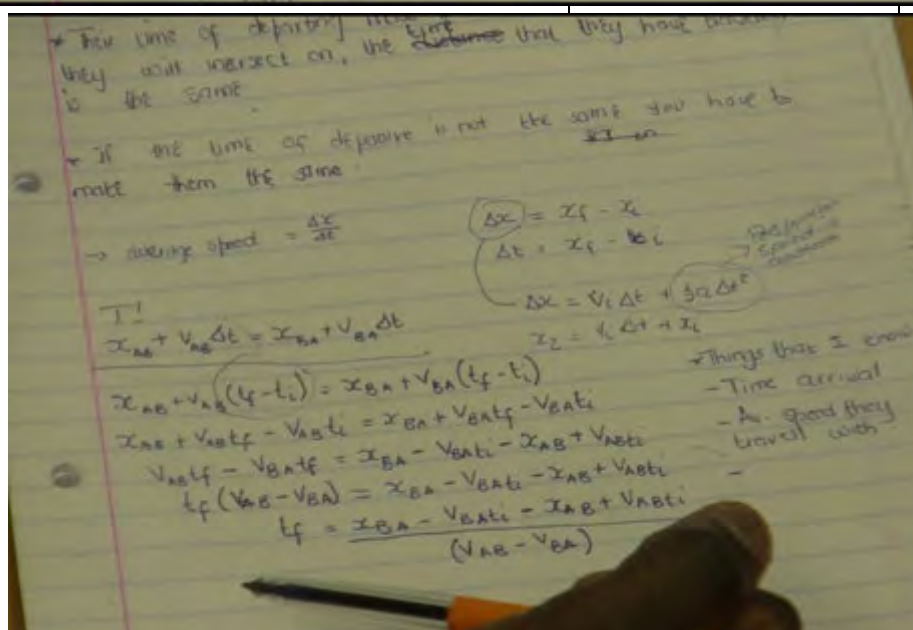 * Their time of departing
time
they will intersect on, the distance that they have
is the same.
* If the time of deparive is not the same you have to
make them the same.
→ average speed = Δx/Δt
Δx = xf - xi
Δt = xf - ti
Δx = Vi Δt + ½a Δt²
x2 = Vi Δt + xi
T!
xAB + VABΔt = xBA + VBAΔt
xAB + VAB(tf - ti) = xBA + VBA(tf - ti)
xAB + VABtf - VABti = xBA + VBAtf - VBAti
VABtf - VBAtf = xBA - VBAti - xAB + VABti
tf(VAB - VBA) = xBA - VBAti - xAB + VABti
tf = xBA - VBAti - xAB + VABti
(VAB - VBA)
*Things that I know
- Time arrival
- Av. speed they
travel with
-